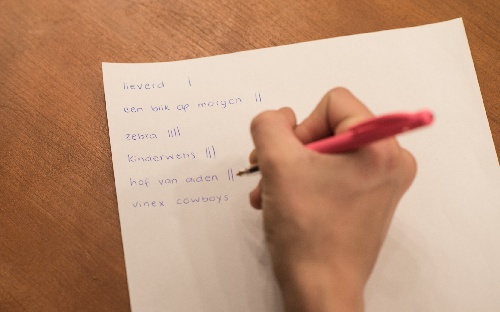 lieverd I
een blik op morgen II
zebra IIII
kinderwens III
hof van aiden II
vinex cowboys